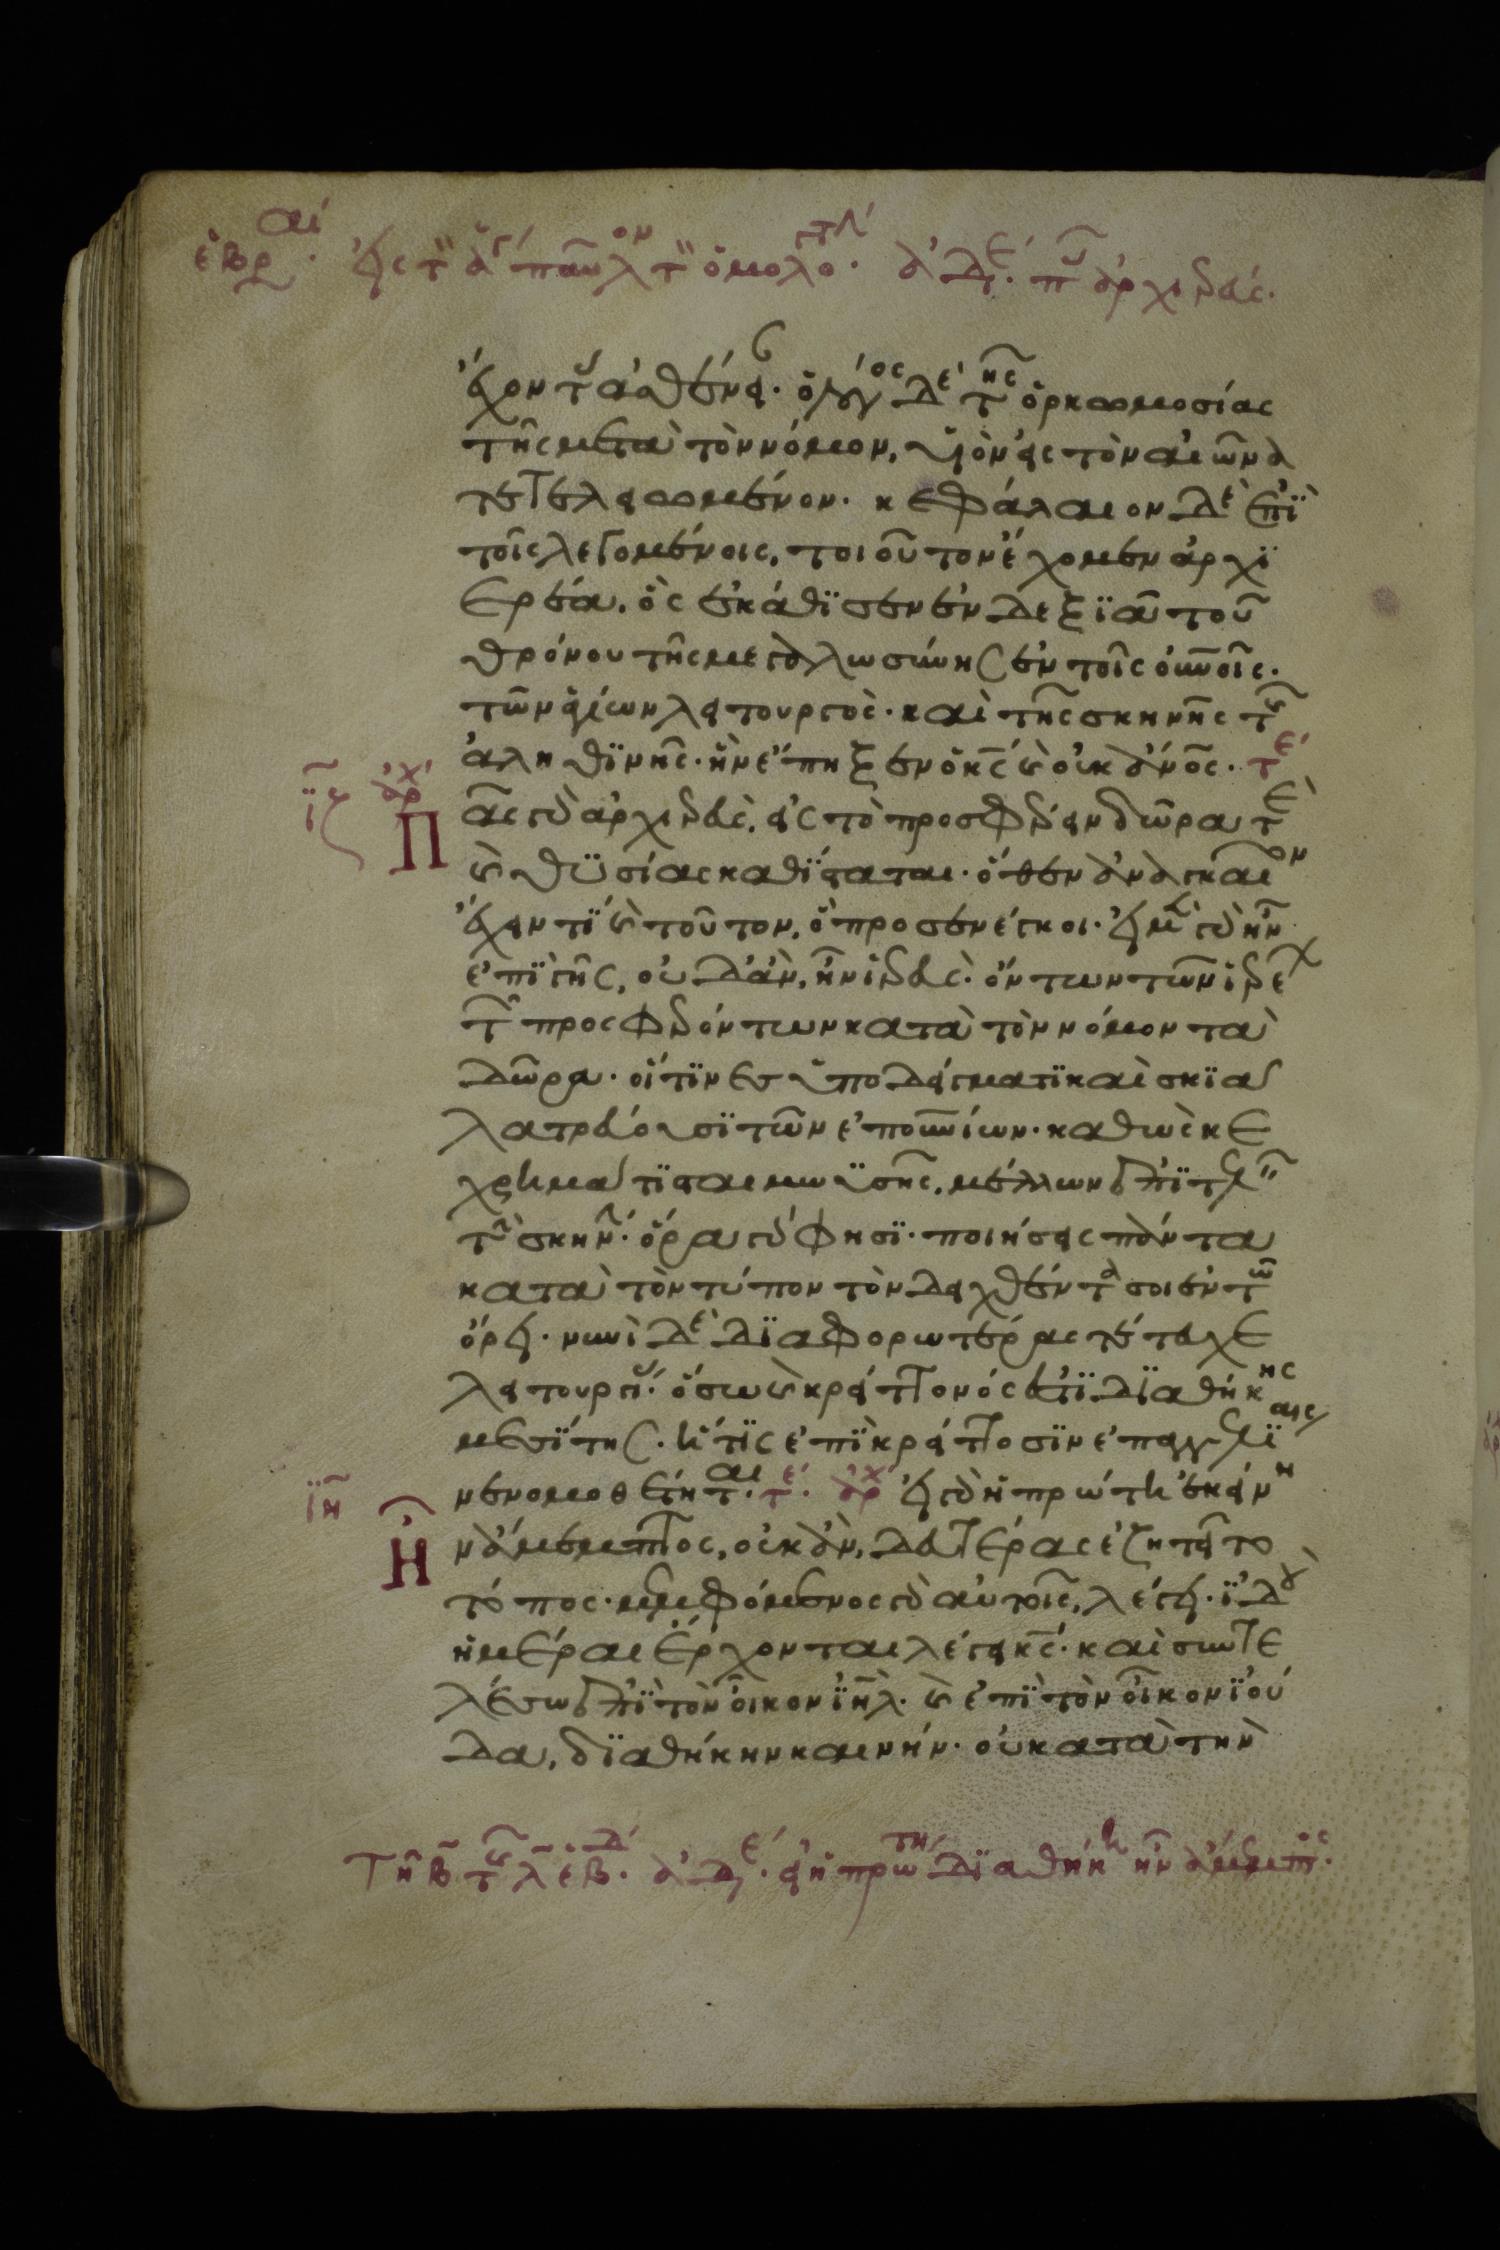 ἔχοντας ἀσθένειαν· ὁ λόγος δὲ τῆς ὁρκωμοσίας
τῆς μετὰ τὸν νόμον, υἱὸν εἰς τὸν αἰῶνα
τετελειωμένον· κεφάλαιον δὲ ἐπὶ
τοῖς λεγομένοις, τοιοῦτον ἔχομεν ἀρχι
ερέα. ὃς ἐκάθϊσεν ἐν δεξϊᾶ τοῦ
θρόνου τῆς μεγαλωσύνης ἐν τοῖς οὐνοῖς·
τῶν ἁγίων λειτουργὸς· καὶ τῆς σκηνῆς τῆς
ἀληθϊνῆς· ἣν ἔπηξεν ὁ κς́ καὶ οὐκ ἄνος· τε
Πᾶς γὰρ ἀρχιερεὺς, εἰς τὸ προσφέρειν δῶρα τε
καὶ θϋσίας καθίσταται· ὅθεν ἀναγκαῖον
ἔχειν τϊ καὶ τοῦτον, ὃ προσενέγκοι· εἰ μὲν γὰρ ἦν
ἐπὶ γῆς, οὐδ' ἂν, ἦν ἱερεὺς· ὄντων τῶν ἱερέων
τῶν προσφερόντων κατὰ τὸν νόμον τὰ
δῶρα· οἵτϊνες ὑποδείγματϊ καὶ σκϊᾶ
λατρεύουσϊ τῶν ἐπουνίων· καθὼς κε
χρημάτϊσται μωϋσῆς, μέλλων ἐπιτελεῖν
τὴν σκηνήν· ὅρα γάρ φησϊ· ποιήσεις πάντα
κατὰ τὸν τύπον τὸν δειχθέντα σοι ἐν τῶ
ὄρει· νυνὶ δὲ δϊαφορωτέρας τέτευχε
λειτουργίας· ὅσω καὶ κρείττονός ἐστϊ δϊαθήκης
μεσϊτης· ἥτϊς ἐπὶ κρείττοσϊν ἐπαγγελίαις
νενομοθέτηται· τε· ἀρχ εἰ γὰρ ἡ πρώτη ἐκείνη
Ἦν ἄμεμπτος, οὐκ ἂν, δευτέρας ἐζητεῖτο
τόπος· μεμφόμενος γὰρ αὐτοῖς, λέγει· ἰδοὺ
ἡμέραι ἔρχονται λέγει κς́· καὶ συντε
λέσω ἐπὶ τὸν οἶκον ἰηλ· καὶ ἐπὶ τὸν οἶκον ἰού
δα, δϊαθήκην καινήν· οὐ κατὰ τὴν